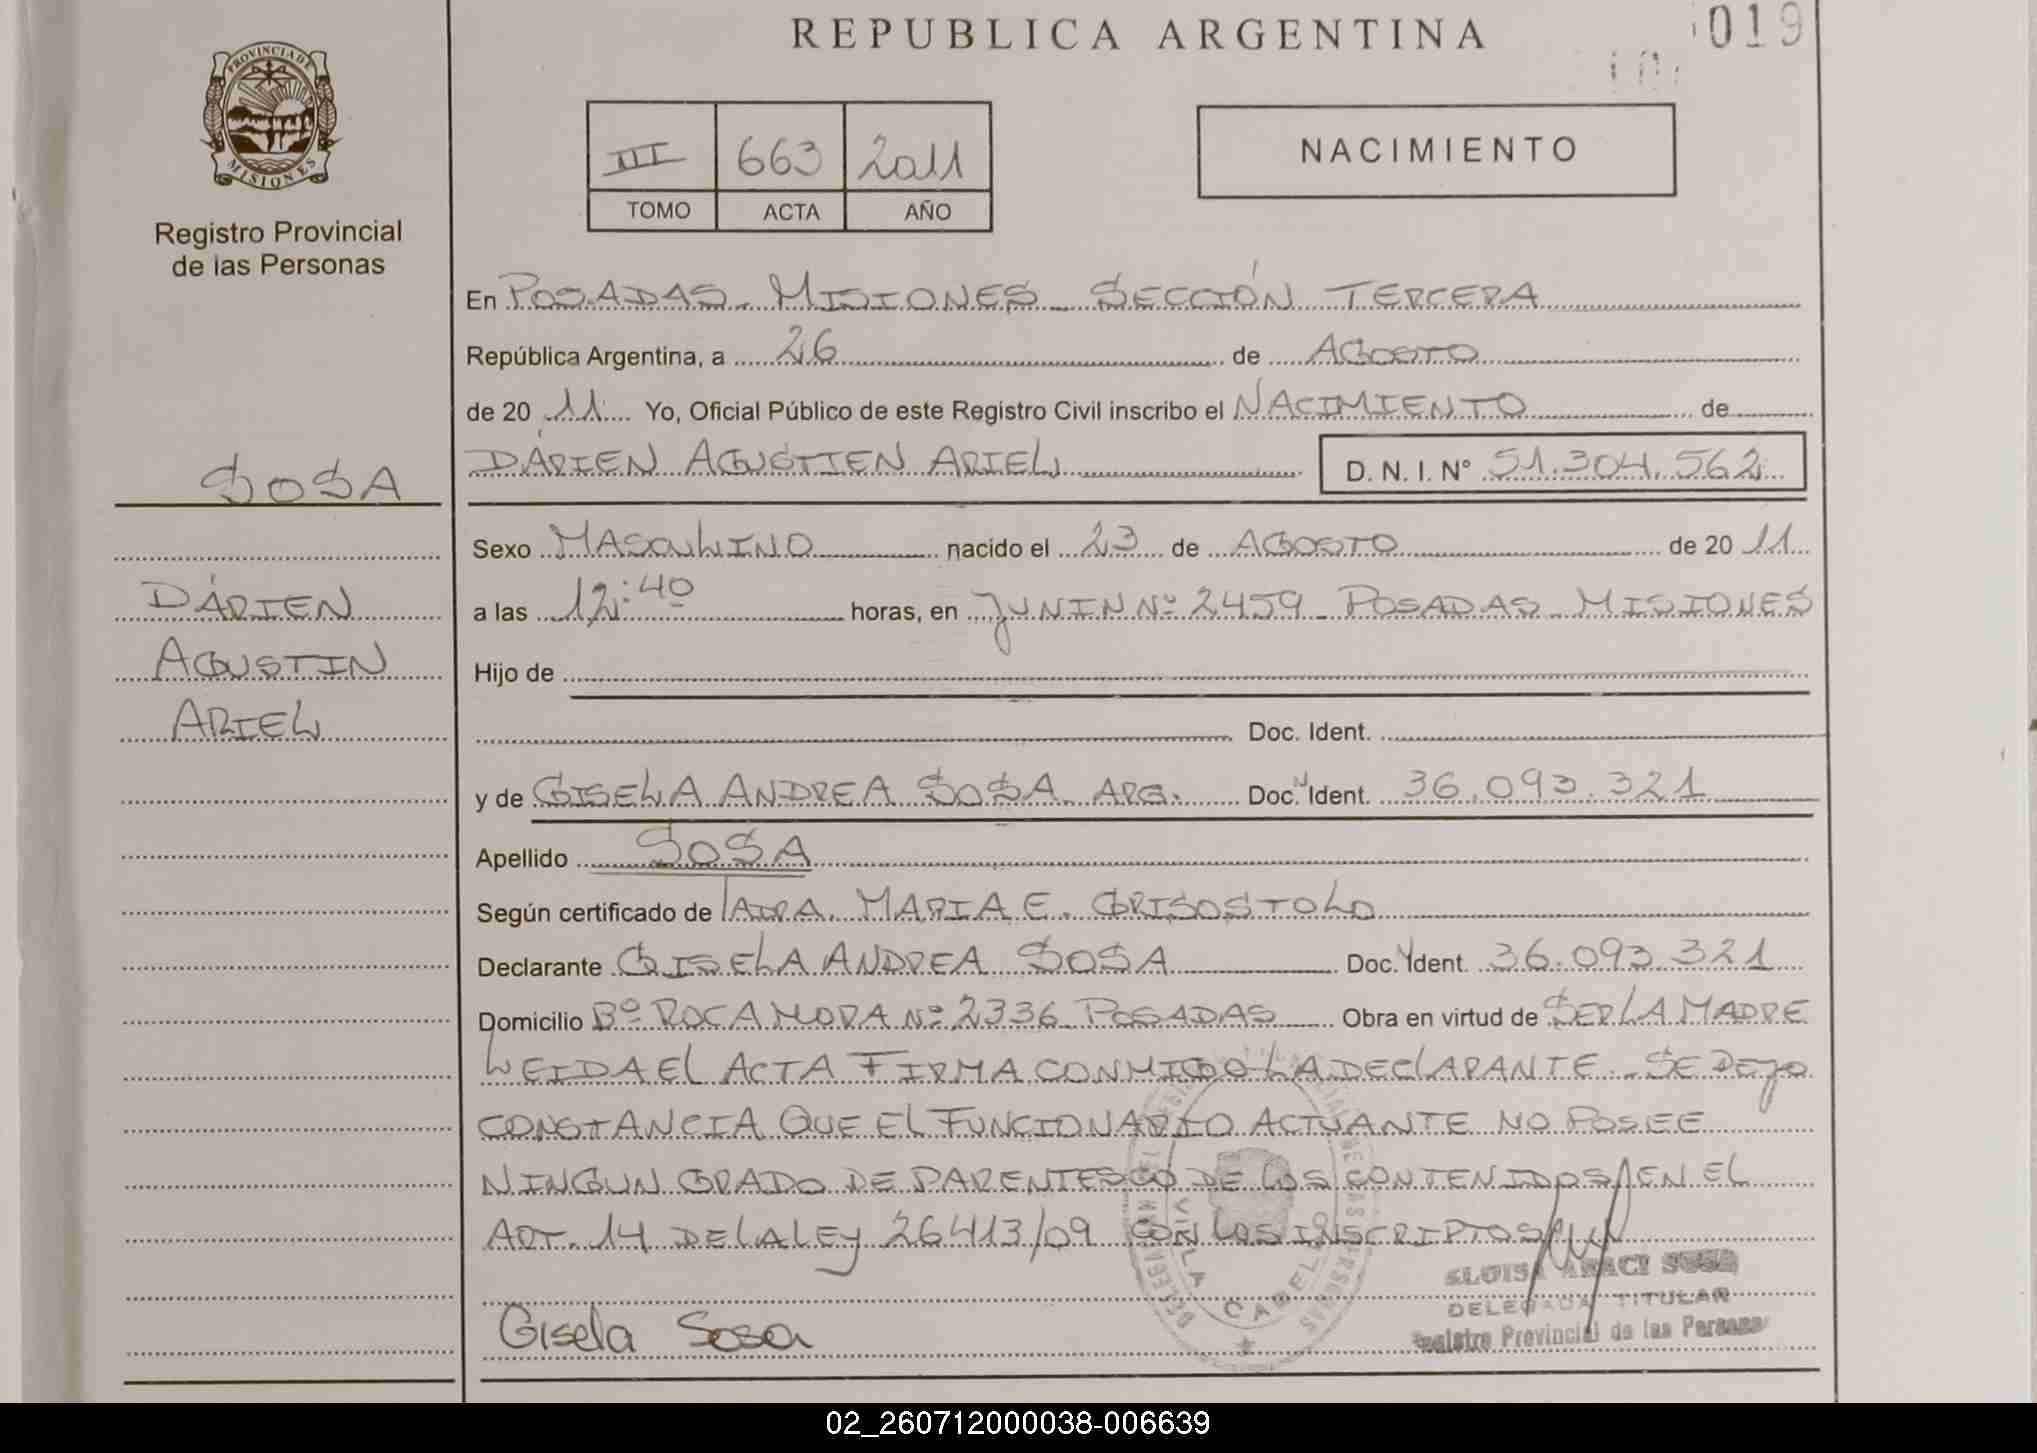 REPUBLICA ARGENTINA
019
PROVINCIA DE
MISIONES
Registro Provincial
de las Personas
III 663 2011
TOMO ACTA AÑO
NACIMIENTO
En POSADAS - MISIONES - SECCIÓN TERCERA
República Argentina, a 26 de AGOSTO
de 20 11 Yo, Oficial Público de este Registro Civil inscribo el NACIMIENTO de
DÁRIEN AGUSTIEN ARIEL D. N. I. Nº 51.304.562
SOSA
DÁRIEN
AGUSTIN
ARIEL
Sexo MASCULINO nacido el 23 de AGOSTO de 20 11
a las 12:40 horas, en JUNIN Nº 2459 - POSADAS - MISIONES
Hijo de
Doc. Ident.
y de GISELA ANDREA SOSA ARG. Doc. Ident. 36.093.321
Apellido SOSA
Según certificado de MARIA E. GRISOSTOLO
Declarante GISELA ANDREA SOSA Doc. Ident. 36.093.321
Domicilio Bº ROCAMORA Nº 2336 POSADAS Obra en virtud de SER LA MADRE
LEIDA EL ACTA FIRMA CONMIGO LA DECLARANTE. - SE DEJO
CONSTANCIA QUE EL FUNCIONARIO ACTUANTE NO POSEE
NINGUN GRADO DE PARENTESCO DE LOS CONTENIDOS EN EL
ART. 14 DE LA LEY 26413/09 CON LOS INSCRIPTOS
Gisela Sosa
VILLA CABELLO
ELOISA ARACI SOSA
DELEGADA TITULAR
Registro Provincial de las Personas
02_260712000038-006639